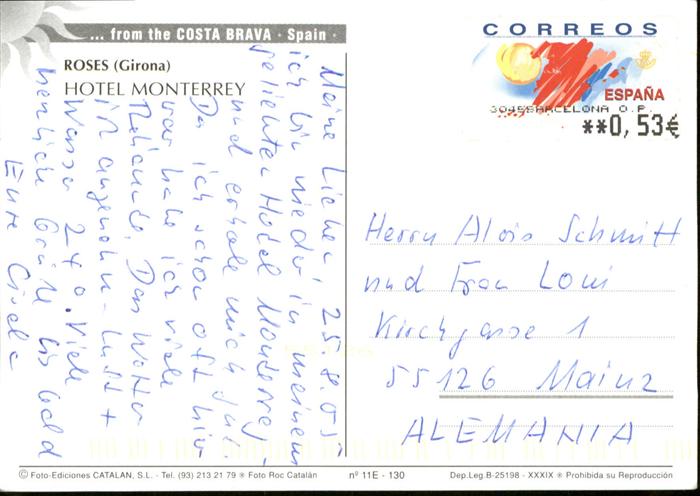 ... from the COSTA BRAVA · Spain ·
ROSES (Girona)
HOTEL MONTERREY
Meine Lieben, 25.8.05
ich bin wieder in meinem
geliebten Hotel Monterrey
und erhole mich gut
Da ich schon oft hier
war habe ich viele
Bekannte. Das Wetter
ist angenehm - Luft +
Wasser 24°. Viele
herzliche Grüße bis bald
Eure Gisela
CORREOS
ESPAÑA
3045BARCELONA O.P.
**0,53€
Herrn Alois Schmitt
und Frau Loni
Kirchgasse 1
55126 Mainz
ALEMANIA
© Foto-Ediciones CATALAN, S.L. - Tel. (93) 213 21 79 ※ Foto Roc Catalán nº 11E - 130 Dep.Leg.B-25198 - XXXIX ※ Prohibida su Reproducción